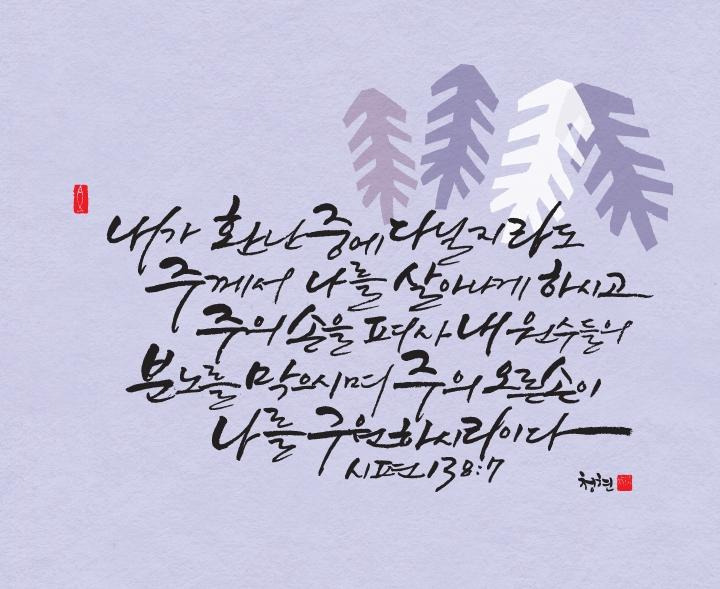 내가 환난 중에 다닐지라도
주께서 나를 살아나게 하시고
주의 손을 펴사 내 원수들의
분노를 막으시며 주의 오른손이
나를 구원하시리이다
시편 138:7
청현